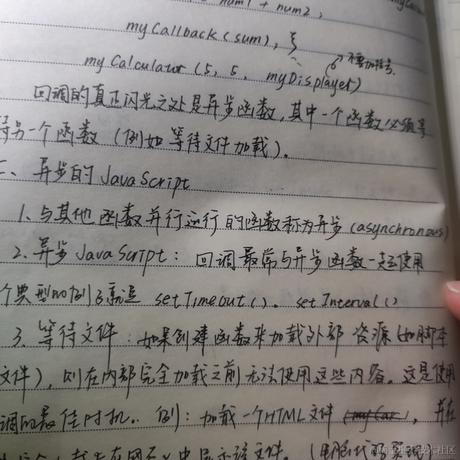 num1 + num2,
myCallback(sum), }
myCalculator(5, 5, myDisplayer)
不要加括号.
回调的真正闪光之处是异步函数,其中一个函数必须等
待另一个函数(例如等待文件加载)。
二、异步的JavaScript
1、与其他函数并行运行的函数称为异步(asynchronous)
2.异步JavaScript:回调最常与异步函数一起使用
个典型的例子就是setTimeout()。setInterval()
3.等待文件:如果创建函数来加载外部资源(如脚本
文件),则在内部完全加载之前无法使用这些内容。这是使用
调的最佳时机。例:加载一个HTML文件(myCar),并在